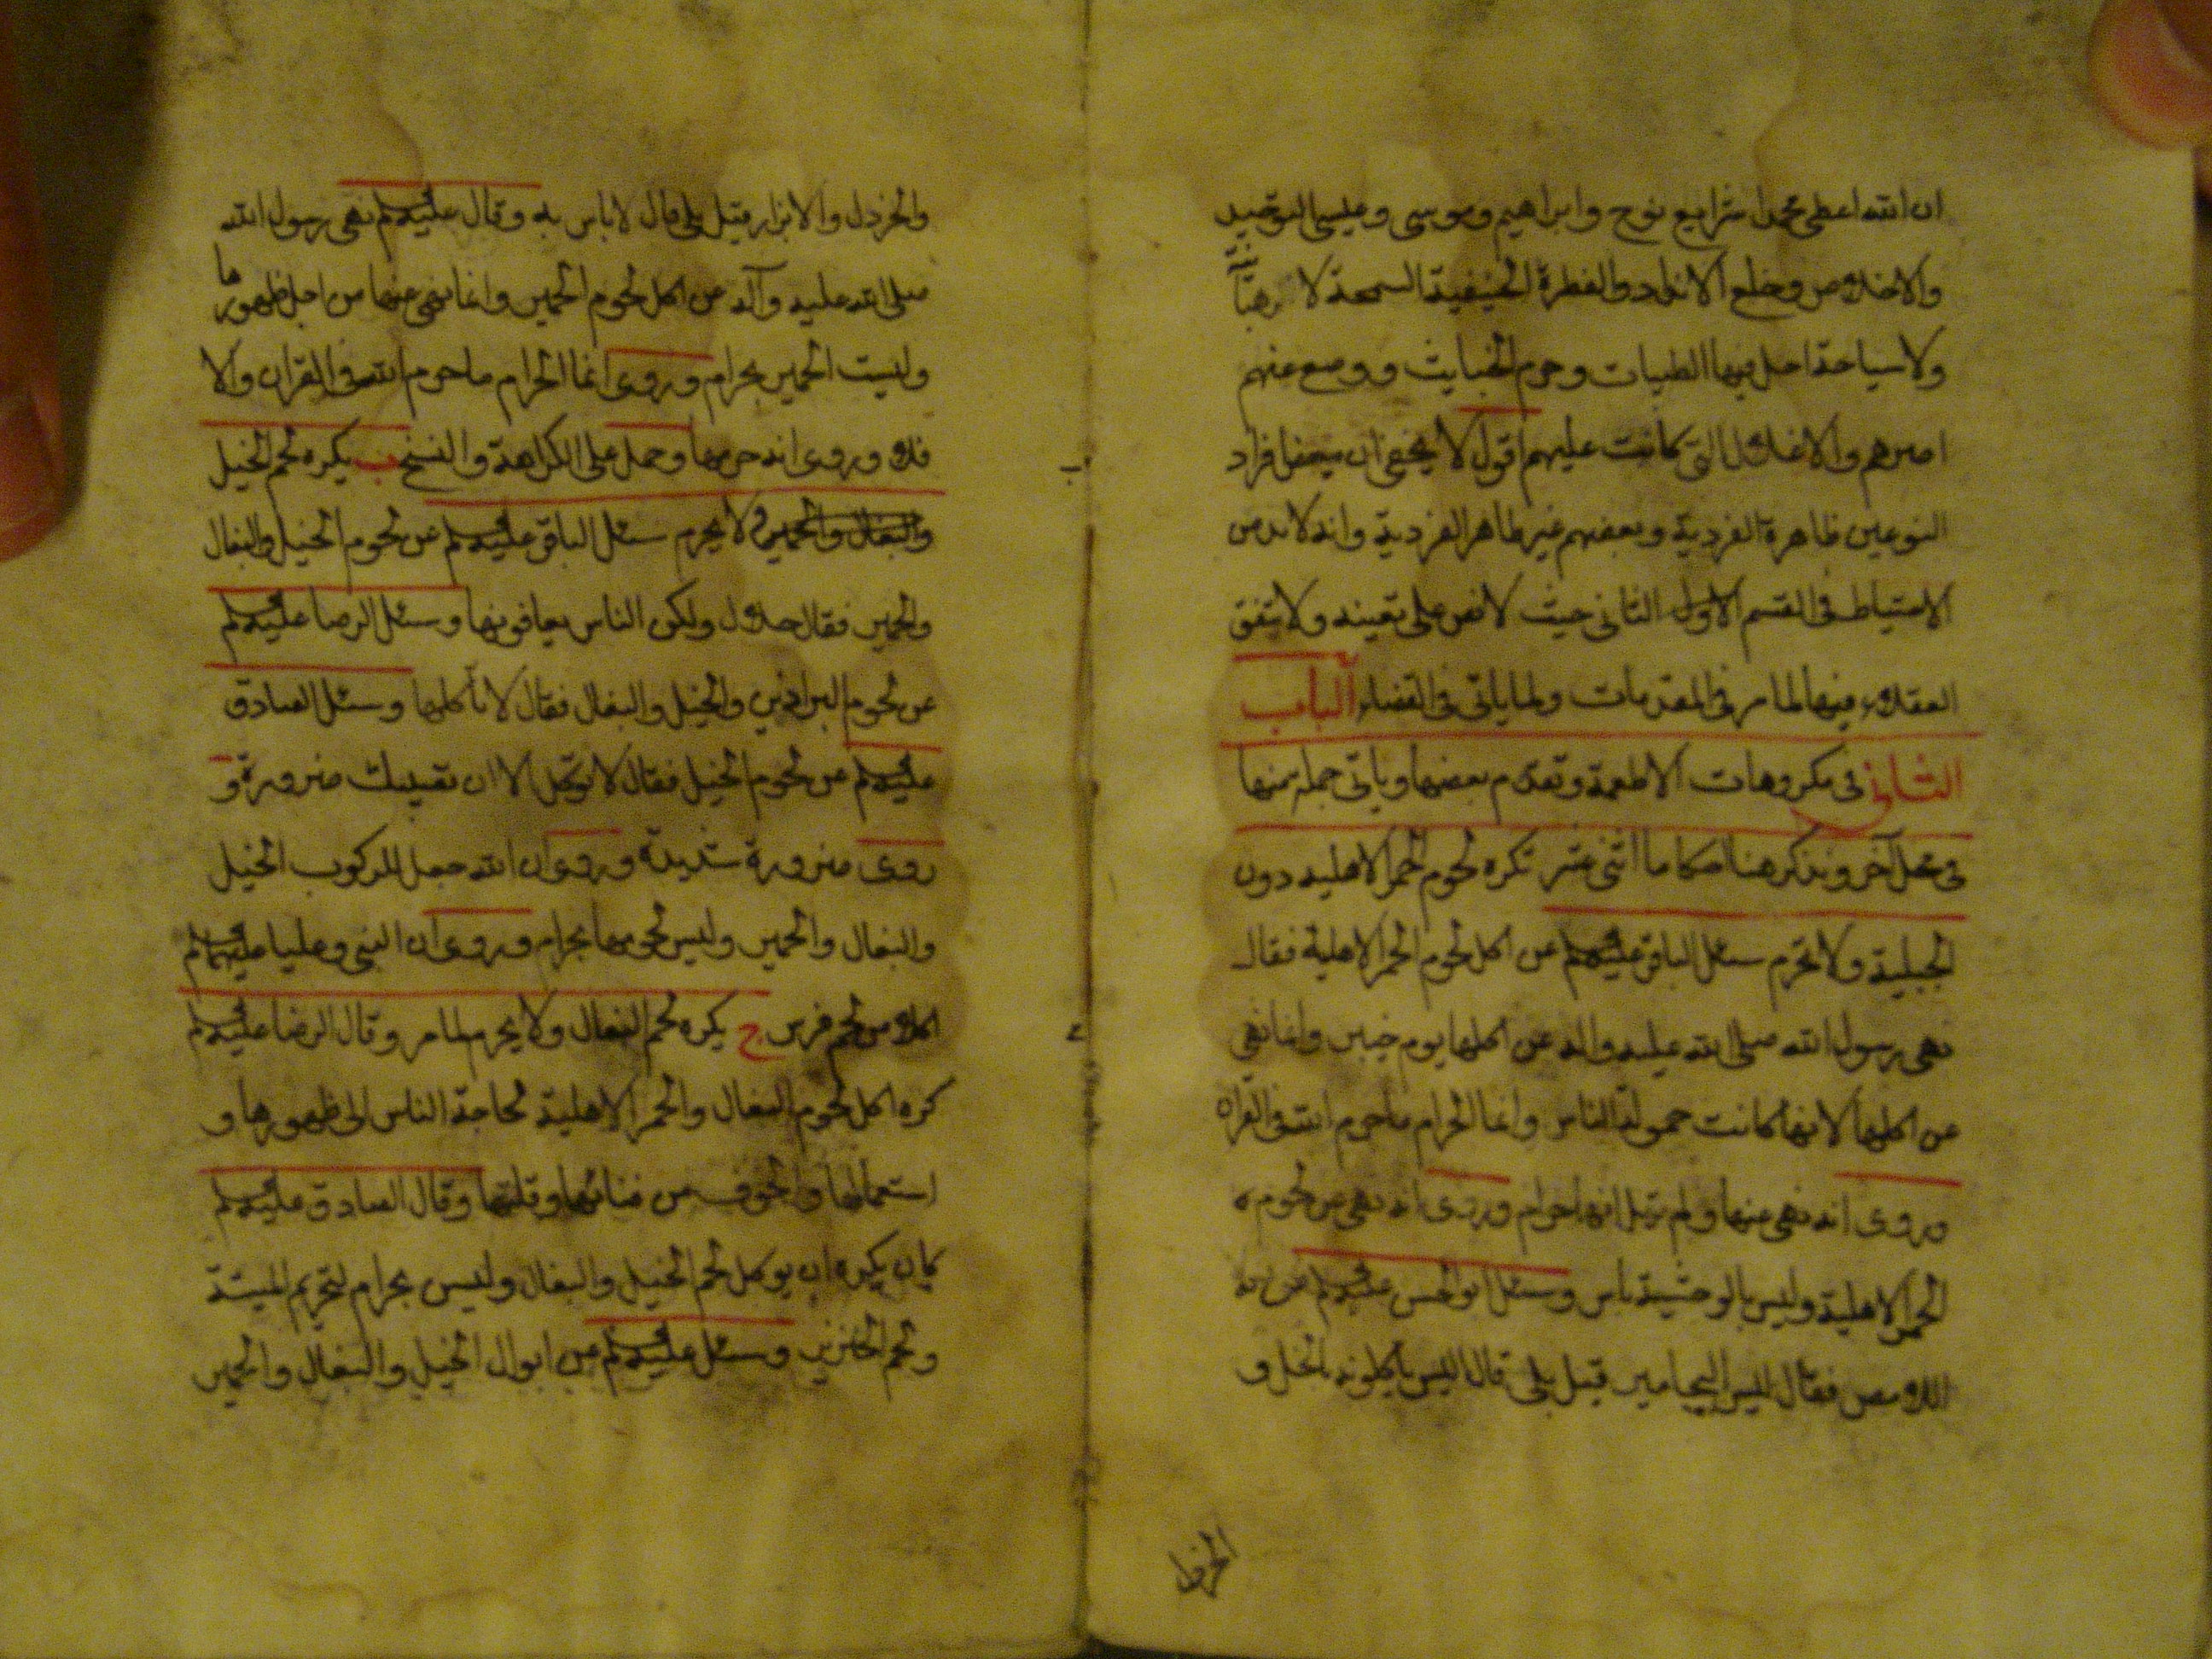 ان الله اعطى محمدا شرايع نوح وابراهيم وموسى وعيسى التوحيد
والاخلاص وخلع الانداد والفطرة الحنيفية السمحة لا رهبانية
ولا سياحة احل فيها الطيبات وحرم الخبايث ووضع عنهم
اصرهم والاغلال التى كانت عليهم اقول لا يخفى ان بعض افراد
النوعين ظاهرة الفردية وبعضهم غير ظاهر الفردية وانه لا بد من
الاحتياط فى القسم الاول الثانى حيث لا نص على تعيينه ولا يتفق
العقلاء فيها لما مر فى المقدمات ولما ياتى فى القضاء الباب
الثانى فى مكروهات الاطعمة وتقدم بعضها وياتى جملة منها
فى محل آخر ونذكر هنا احكاما اثنى عشر تكره لحوم الحمر الاهليه دون
الجبلية ولا تحرم سئل الباقر عليه‌السلم عن اكل لحوم الحمر الاهلية فقال
نهى رسول الله صلى الله عليه واله عن اكلها يوم خيبر وانما نهى
عن اكلها لانها كانت حمولة الناس وانما الحرام ما حرم الله فى القران
وروى انه نهى عنها ولم يقل انها حرام وروى انه نهى عن لحوم
الحمر الاهلية وليس بالوحشية باس وسئل ابو الحسن عليه‌السلم عن
اللامص فقال اليس اليحامير قيل بلى قال اليس ياكلونه بالخل و
الخردل
والخردل والابزار قيل بلى قال لا باس به وقال عليه‌السلم نهى رسول الله
صلى الله عليه وآله عن اكل لحوم الحمير وانما نهى عنها من اجل ظهورها
وليست الحمير بحرام وروى انما الحرام ما حرم الله فى القران والا
فلا وروى انه حرمها وحمل على الكراهة والنسخ ب يكره لحم الخيل
والبغال والحمير ولا يحرم سئل الباقر عليه‌السلم عن لحوم الخيل والبغال
والحمير فقال حلال ولكن الناس يعافونها وسئل الرضا عليه‌السلم
عن لحوم البراذين والخيل والبغال فقال لا تأكلها وسئل الصادق
عليه‌السلم عن لحوم الخيل فقال لا توكل الا ان تصيبك ضرورة و
روى ضرورة شديدة وروى ان الله جعل للركوب الخيل
والبغال والحمير وليس لحومها بحرام وروى ان النبى وعليا عليهما السلم
اكلا من لحم فرس ج يكره لحم البغال ولا يحرم لما مر وقال الرضا عليه‌السلم
كره اكل لحوم البغال والحمر الاهلية لحاجة الناس الى ظهورها و
استعمالها والخوف من فنائها وقلتها وقال الصادق عليه‌السلم
كان يكره ان يوكل لحم الخيل والبغال وليس بحرام لتحريم الميتة
ولحم الخنزير وسئل عليه‌السلم عن ابوال الخيل والبغال والحمير